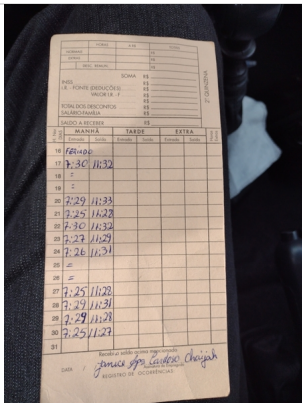 HORAS A R$ TOTAL
NORMAIS R$
EXTRAS R$
DESC. REMUN. R$
SOMA R$
INSS R$
I.R. - FONTE (DEDUÇÕES) R$
VALOR I.R. - F R$
TOTAL DOS DESCONTOS R$
SALÁRIO FAMÍLIA R$
SALDO A RECEBER R$
2ª QUINZENA
MANHÃ TARDE EXTRA
Entrada Saída Entrada Saída Entrada Saída
16 FERIADO
17 7:30 11:32
18 =
19 =
20 7:29 11:33
21 7:25 11:28
22 7:30 11:32
23 7:27 11:29
24 7:26 11:31
25 =
26 =
27 7:25 11:28
28 7:29 11:31
29 7:29 11:28
30 7:25 11:27
31
Recebi o saldo acima mencionado
DATA / Janice Ap. Cardoso
Assinatura do Empregado
REGISTRO DE OCORRÊNCIAS